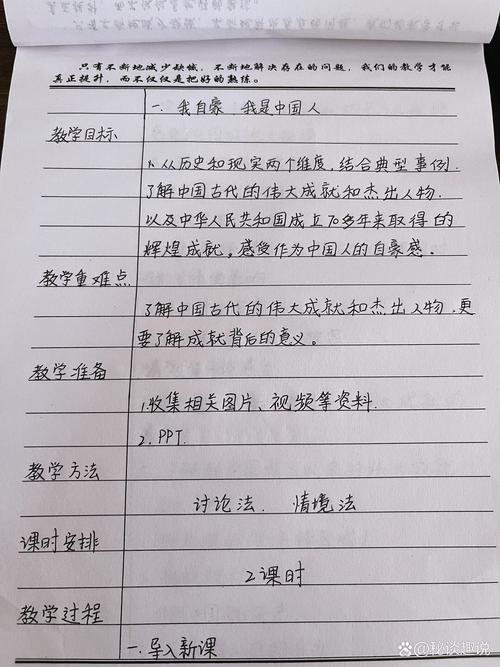 只有不断地减少缺憾，不断地解决存在的问题，我们的教学才能
真正提升，而不仅仅是把好的熟练。
一、我自豪，我是中国人
教学目标
1、从历史和现实两个维度，结合典型事例.
了解中国古代的伟大成就和杰出人物.
以及中华人民共和国成立70多年来取得的
辉煌成就。感受作为中国人的自豪感.
教学重难点
了解中国古代的伟大成就和杰出人物.更
要了解成就背后的意义。
教学准备
1.收集相关图片、视频等资料.
2.PPT.
教学方法
讨论法. 情境法
课时安排
2课时
教学过程
一.导入新课
@秘谈趣说